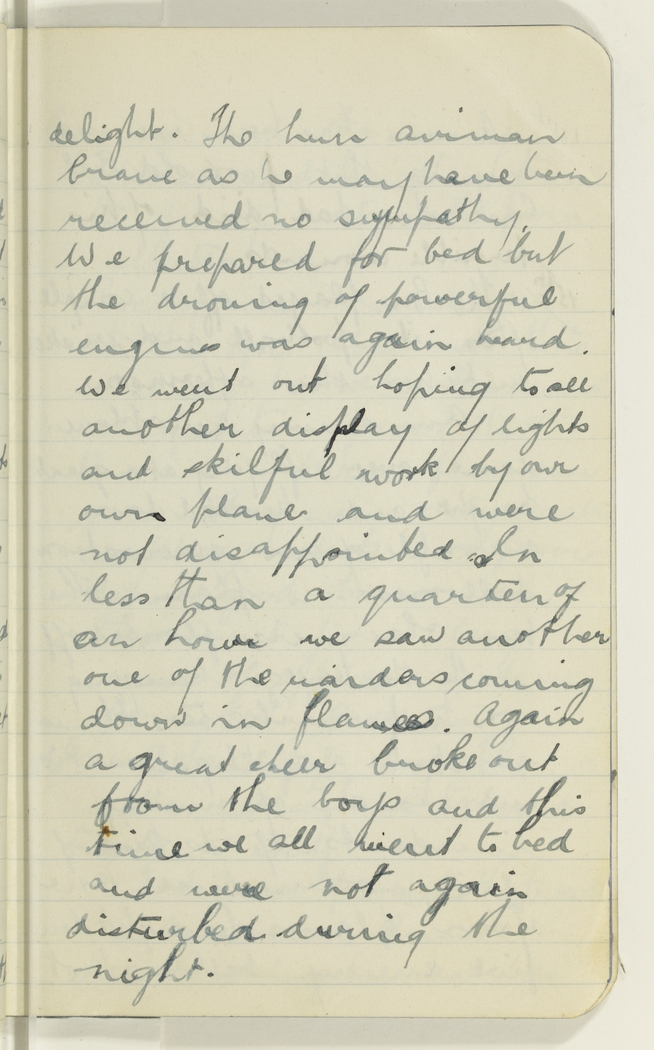 delight. The hun airman
brave as he may have been
received no sympathy.
We prepared for bed but
the droning of powerful
engines was again heard.
We went out hoping to see
another display of lights
and skilful work by our
own plane and were
not disappointed. In
less than a quarter of
an hour we saw another
one of the raiders coming
down in flames. Again
a great cheer broke out
from the boys and this
time we all went to bed
and were not again
disturbed during the
night.